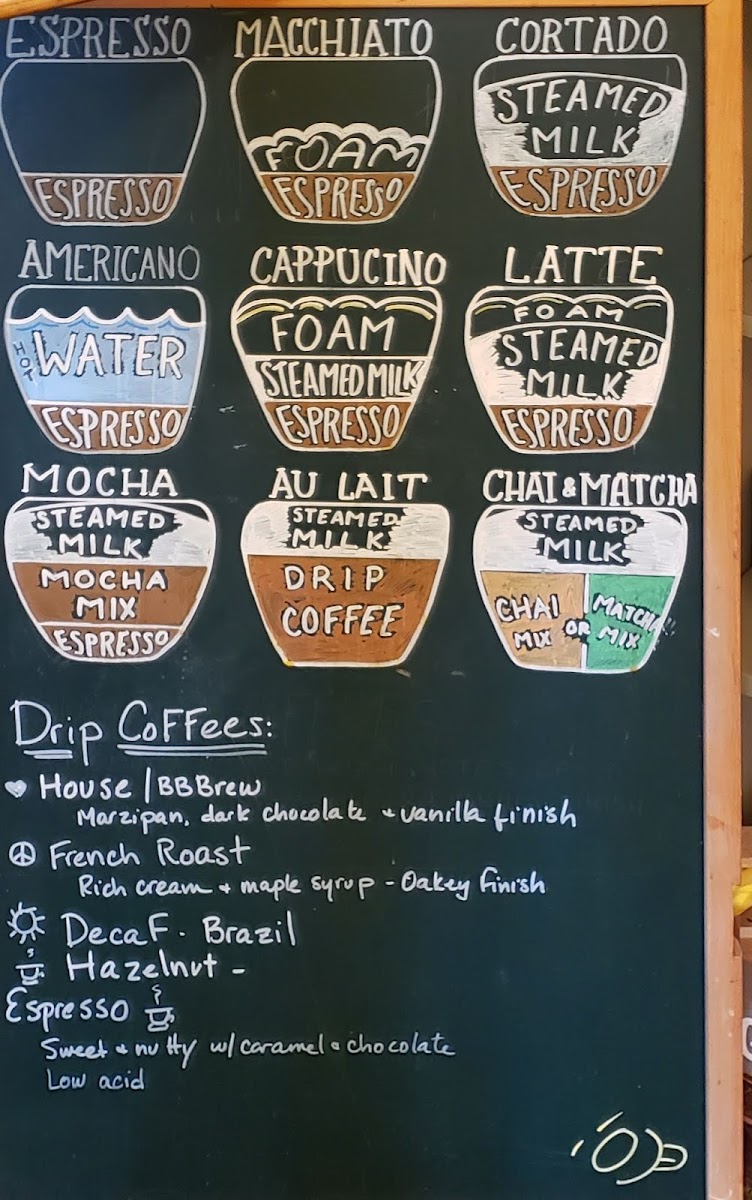 ESPRESSO
ESPRESSO
MACCHIATO
FOAM
ESPRESSO
CORTADO
STEAMED
MILK
ESPRESSO
AMERICANO
HOT WATER
ESPRESSO
CAPPUCINO
FOAM
STEAMED MILK
ESPRESSO
LATTE
FOAM
STEAMED
MILK
ESPRESSO
MOCHA
STEAMED
MILK
MOCHA
MIX
ESPRESSO
AU LAIT
STEAMED
MILK
DRIP
COFFEE
CHAI & MATCHA
STEAMED
MILK
CHAI
MIX
OR
MATCHA!!
MIX
Drip Coffees:
House | BBBrew
Marzipan, dark chocolate + vanilla finish
French Roast
Rich cream + maple syrup - Oakey finish
Decaf. Brazil
Hazelnut -
Espresso
Sweet + nutty w/ caramel & chocolate
Low acid